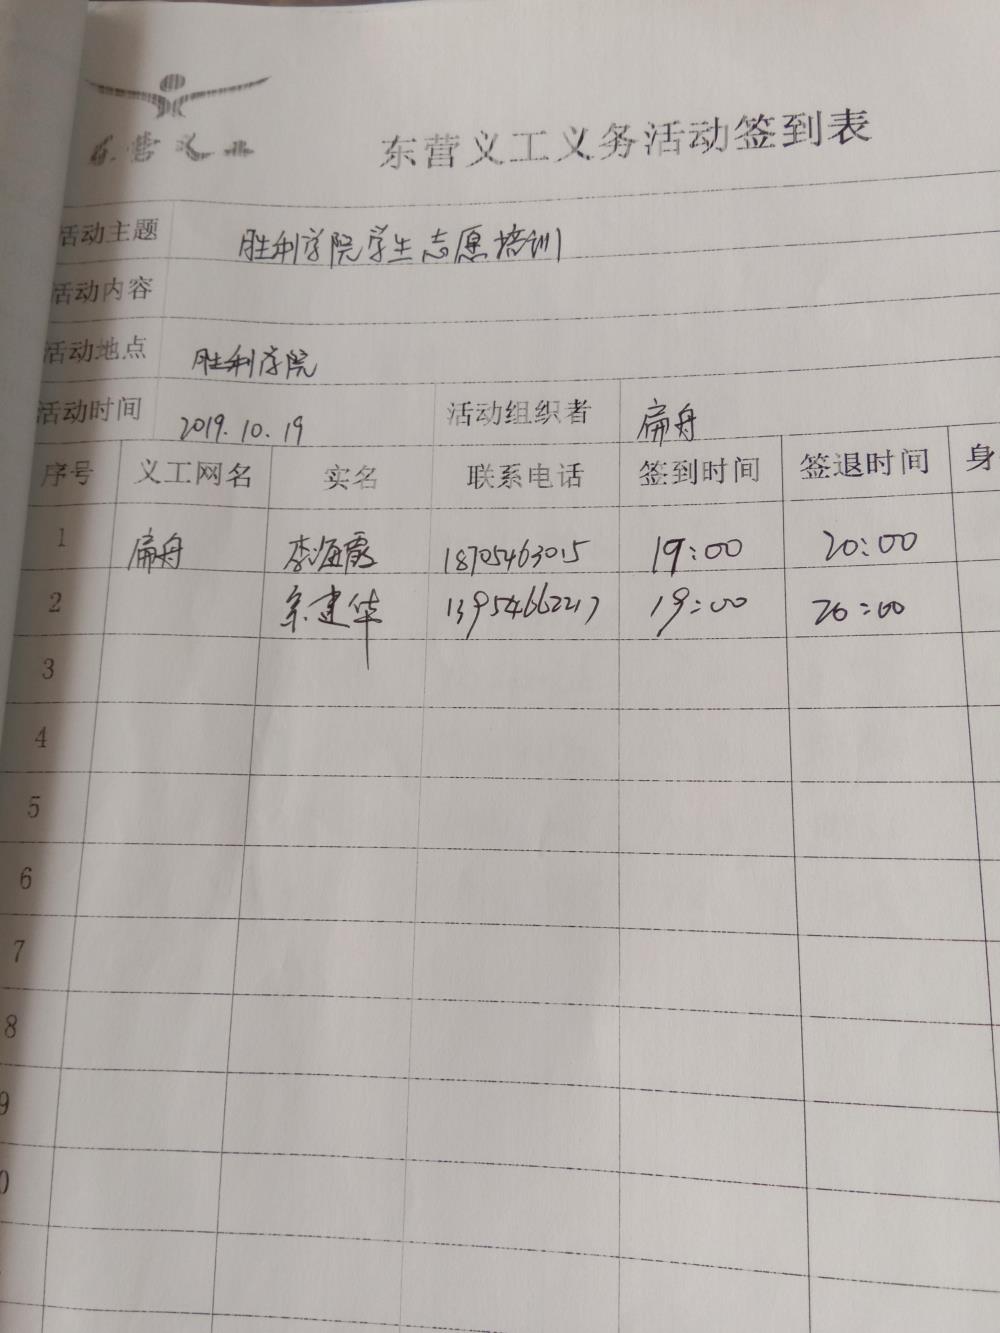 东营义工
东营义工义务活动签到表
活动主题 胜利学院学生志愿培训
活动内容
活动地点 胜利学院
活动时间 2019.10.19 活动组织者 扁舟
序号 义工网名 实名 联系电话 签到时间 签退时间 身
1 扁舟 李海霞 18705463015 19:00 20:00
2 建华 13954662217 19:00 20:00
3
4
5
6
7
8
9
0